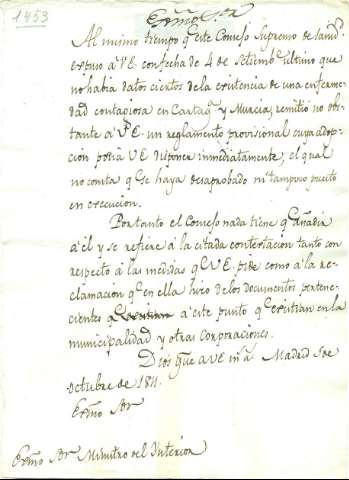 1453
Exmo Sor
Al mismo tiempo qe este Consejo Supremo de Sanid.
expuso a V.E. con fecha de 4 de Setiembre ultimo que
no habia datos ciertos de la existencia de una enferme-
dad contagiosa en Cartaga y Murcia, remitió no obs-
tante a V.E. un reglamento provisional cuya adop-
cion podia V.E. disponer inmediatamente; el qual
no consta qe se haya desaprobado ni tampoco puesto
en execucion.
Por tanto el Consejo nada tiene qe añadir
a él y se refiere á la citada contextacion tanto con
respecto á las medidas qe V.E. pide como á la re-
clamacion qe en ella hizo de los documentos pertene-
cientes a este punto qe existian en la
municipalidad y otras corporaciones.
Dios gue a V.E. ms as. Madrid 5 de
octubre de 1811.
Exmo Sor
Exmo Sor Ministro del Interior